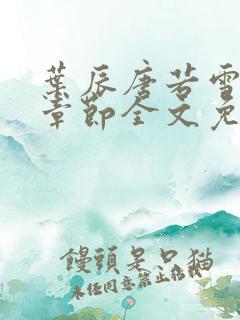 葉辰唐若雪
章節全文免
饅頭是只貓
未任同意禁止转载